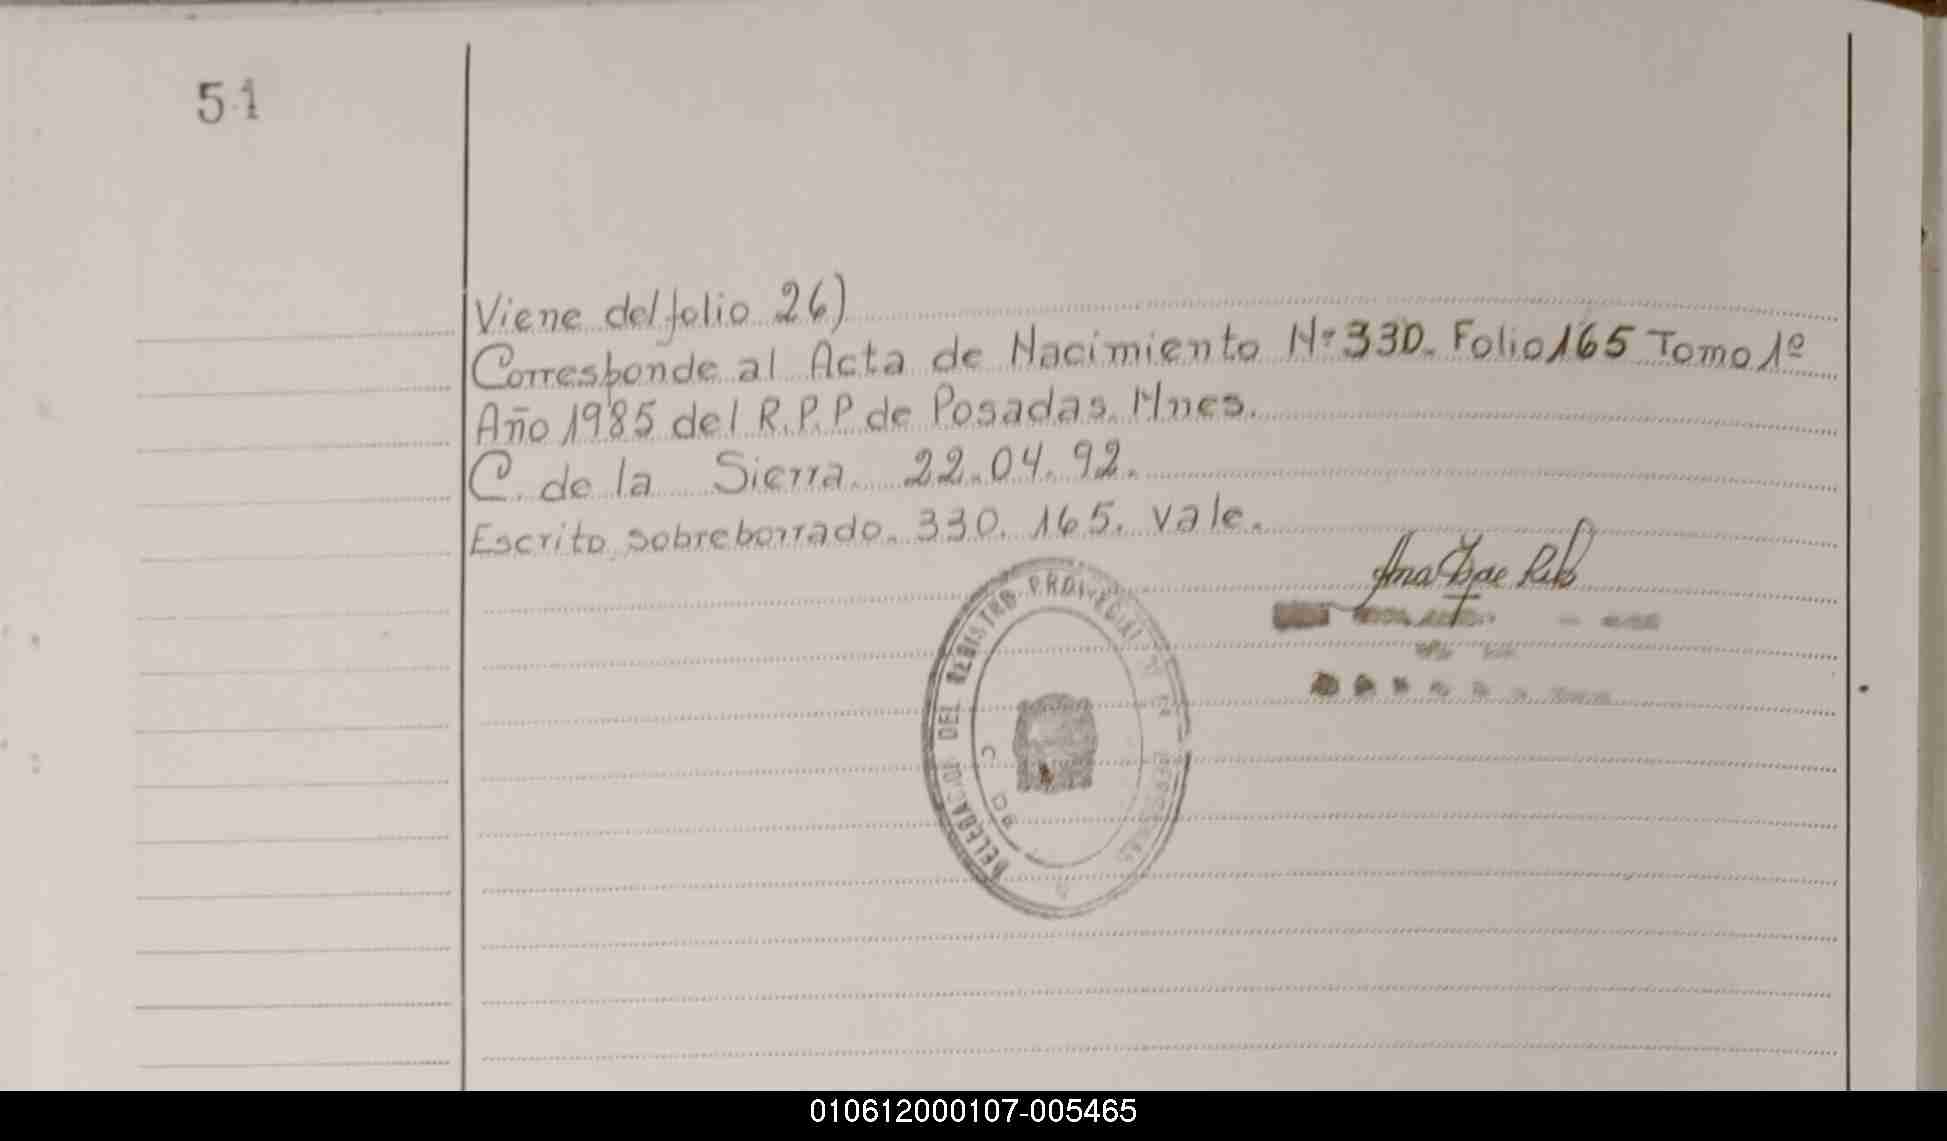 51
Viene del folio 26)
Corresponde al Acta de Nacimiento Nº 330. Folio 165 Tomo 1º
Año 1985 del R.P.P de Posadas. Mnes.
C. de la Sierra. 22.04.92.
Escrito sobreborrado. 330. 165. vale.
DELEGACION DEL REGISTRO PROVINCIAL DE LAS PERSONAS
010612000107-005465